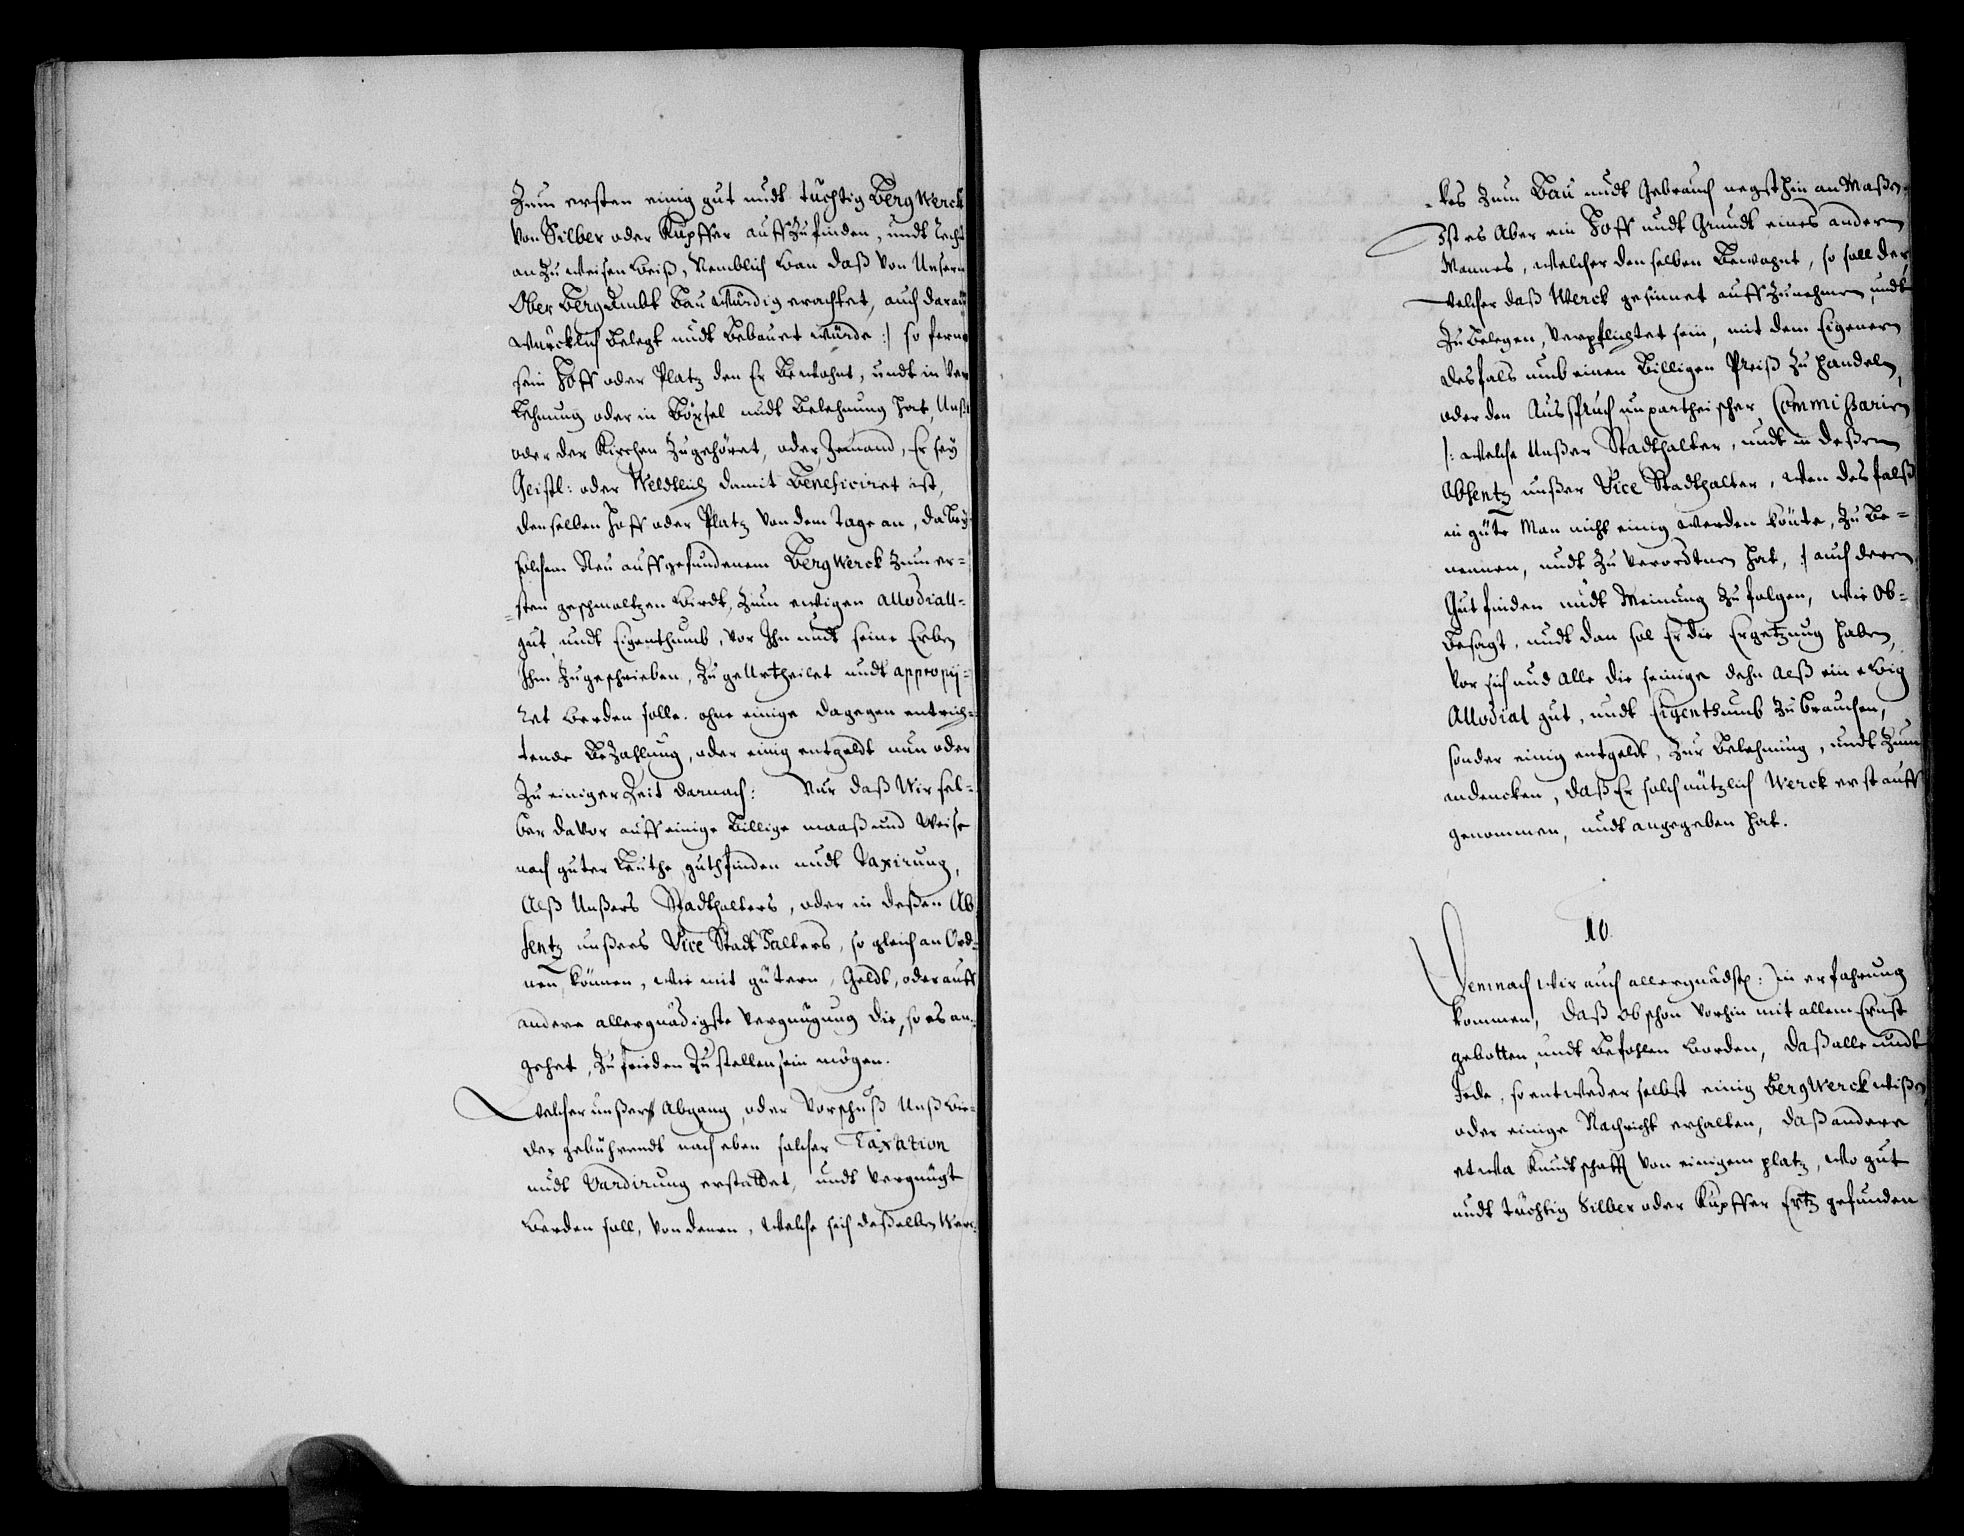 Zum ersten einig gut undt tüchtig Berg Werck
von Silber oder Kupffer auffzufinden, undt recht
an Zu weisen weiß, Nemblich wan daß von Unserm
Ober Bergambt Bau würdig erachtet, auch darauff
würcklich belegt undt bebauet würde :/ so ferne
sein Hoff oder Platz den Er bewohnt, undt in Ver
Lehnung oder in Böxsel undt Belehnung hat, Unß
oder der Kirchen Zugehöret, oder Jemand, Er sey
Geistl: oder Weldtlich damit Beneficiret ist,
denselben Hoff oder Platz von dem Tage an, da bey
solchem Neu auffgefundenem Berg Werck Zum er-
sten geschmoltzen wirdt, Zum ewigen Allodiall-
gut, undt Eigenthumb, vor Ihn undt seine Erben
Ihm Zugeschrieben, Zugeurtheilet undt appropri-
ret werden solle. ohne einige dagegen entrich-
tende BeZahlung, oder einig entgeldt nun oder
Zu einiger Zeit darnach: Nur daß Wir sel-
ber davor auff einige Billige maaß und Weise
nach guter Leuthe guthfinden undt Taxirung,
Alß Unßers Stadthalters, oder in deßen Ab
sentz unßers Vice Stadthalters, so gleich an Ord-
nen können, wie mit gütern, Geldt, oder auff
andere allergnädigste Vergnügung die, so es an-
gehet, Zu frieden Zustellen sein mögen.
Welcher unßerß Abgang, oder Vorschuß Unß wie-
der gebührendt nach eben solcher Taxation
undt Vardirung erstattet, undt vergnügt
werden soll, von denen, welche sich deßelben Wer-
-kes Zum Bau undt Gebrauch negsthin an Maßen,
Ist es Aber ein Hoff undt Grundt eines andern
Mannes, welcher denselben Bewohnt, so soll der,
welcher daß Werck gesinnet auffzunehmen, undt
Zu Belegen, verpflichtet sein, mit dem Eigenern
desfals umb einen Billigen Preiß Zu handeln,
oder den Ausspruch unpartheischer Commissarien
/: welche Unßer Stadthalter, undt in deßen
Absentz unßer Vice Stadthalter, wen des falß
in güte Man nicht einig werden könte, Zu Be-
nennen, undt Zu verordtnen hat, :/ auch deren
Gutfinden undt Meinung Zu folgen, wie Ob-
besagt, undt dan sol Er die Ergetzung haben,
vor sich und Alle die seinige dehn Alß ein ewig
Allodial gut, undt Eigenthumb Zu brauchen,
sonder einig entgeldt, Zur Belehnung, undt Zum
andencken, daß Er solch nützlich Werck erst auff
genommen, undt angegeben hat.
10.
Demnach Wir auch allergnädst: in erfahrung
kommen, daß ob schon vorhin mit allem Ernst
gebotten, undt Befohlen worden, daß alle undt
Jede, so entweder selbst einig BergWerck wißen,
oder einige Nachricht erhalten, daß andere
etwa Kundtschafft von einigem platz, wo gut
undt tüchtig Silber oder Kupffer Ertz gefunden